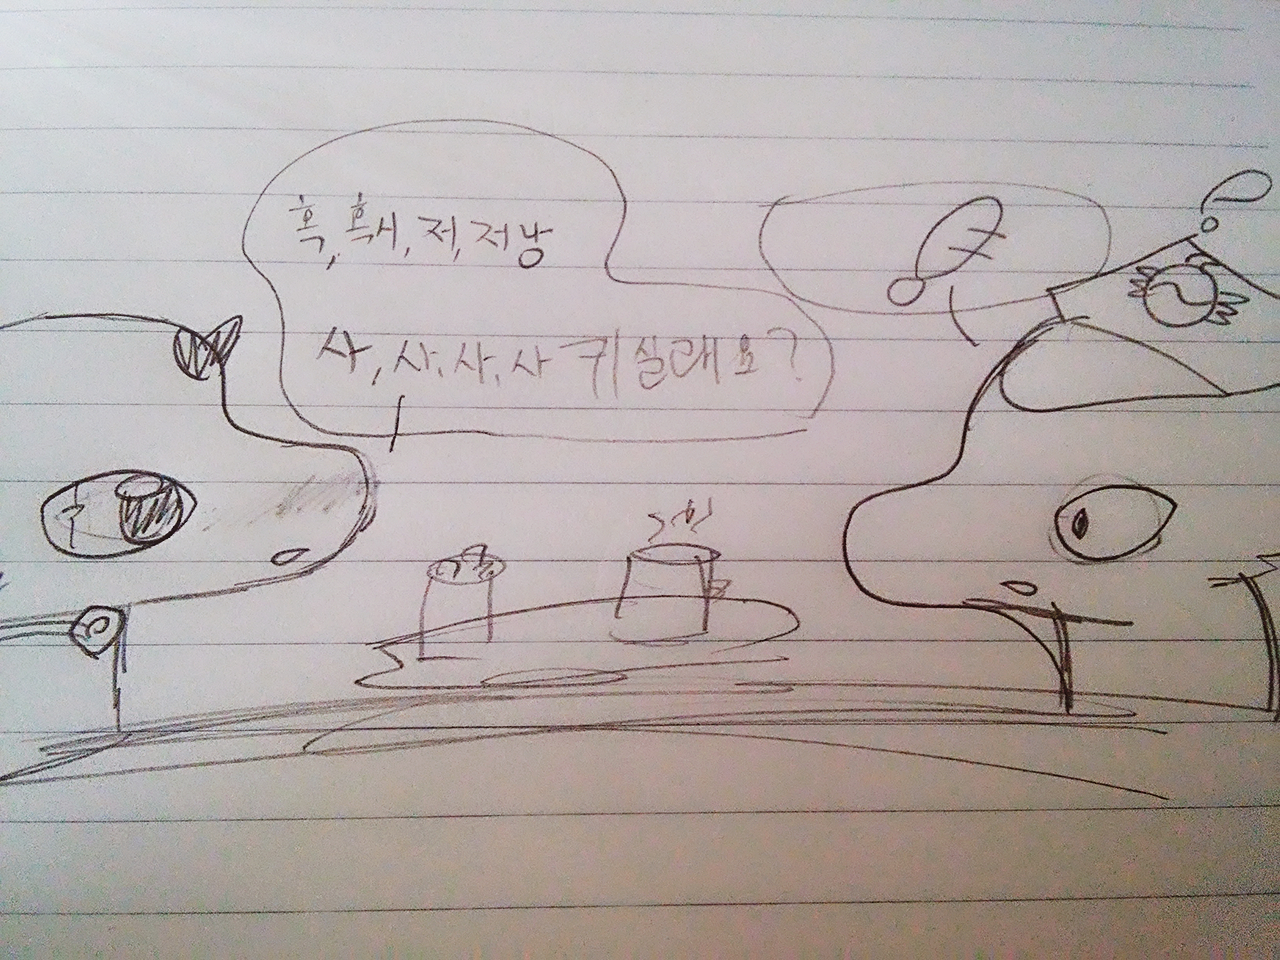 혹, 혹시, 저, 저낭
사, 사, 사, 사 귀실래요?